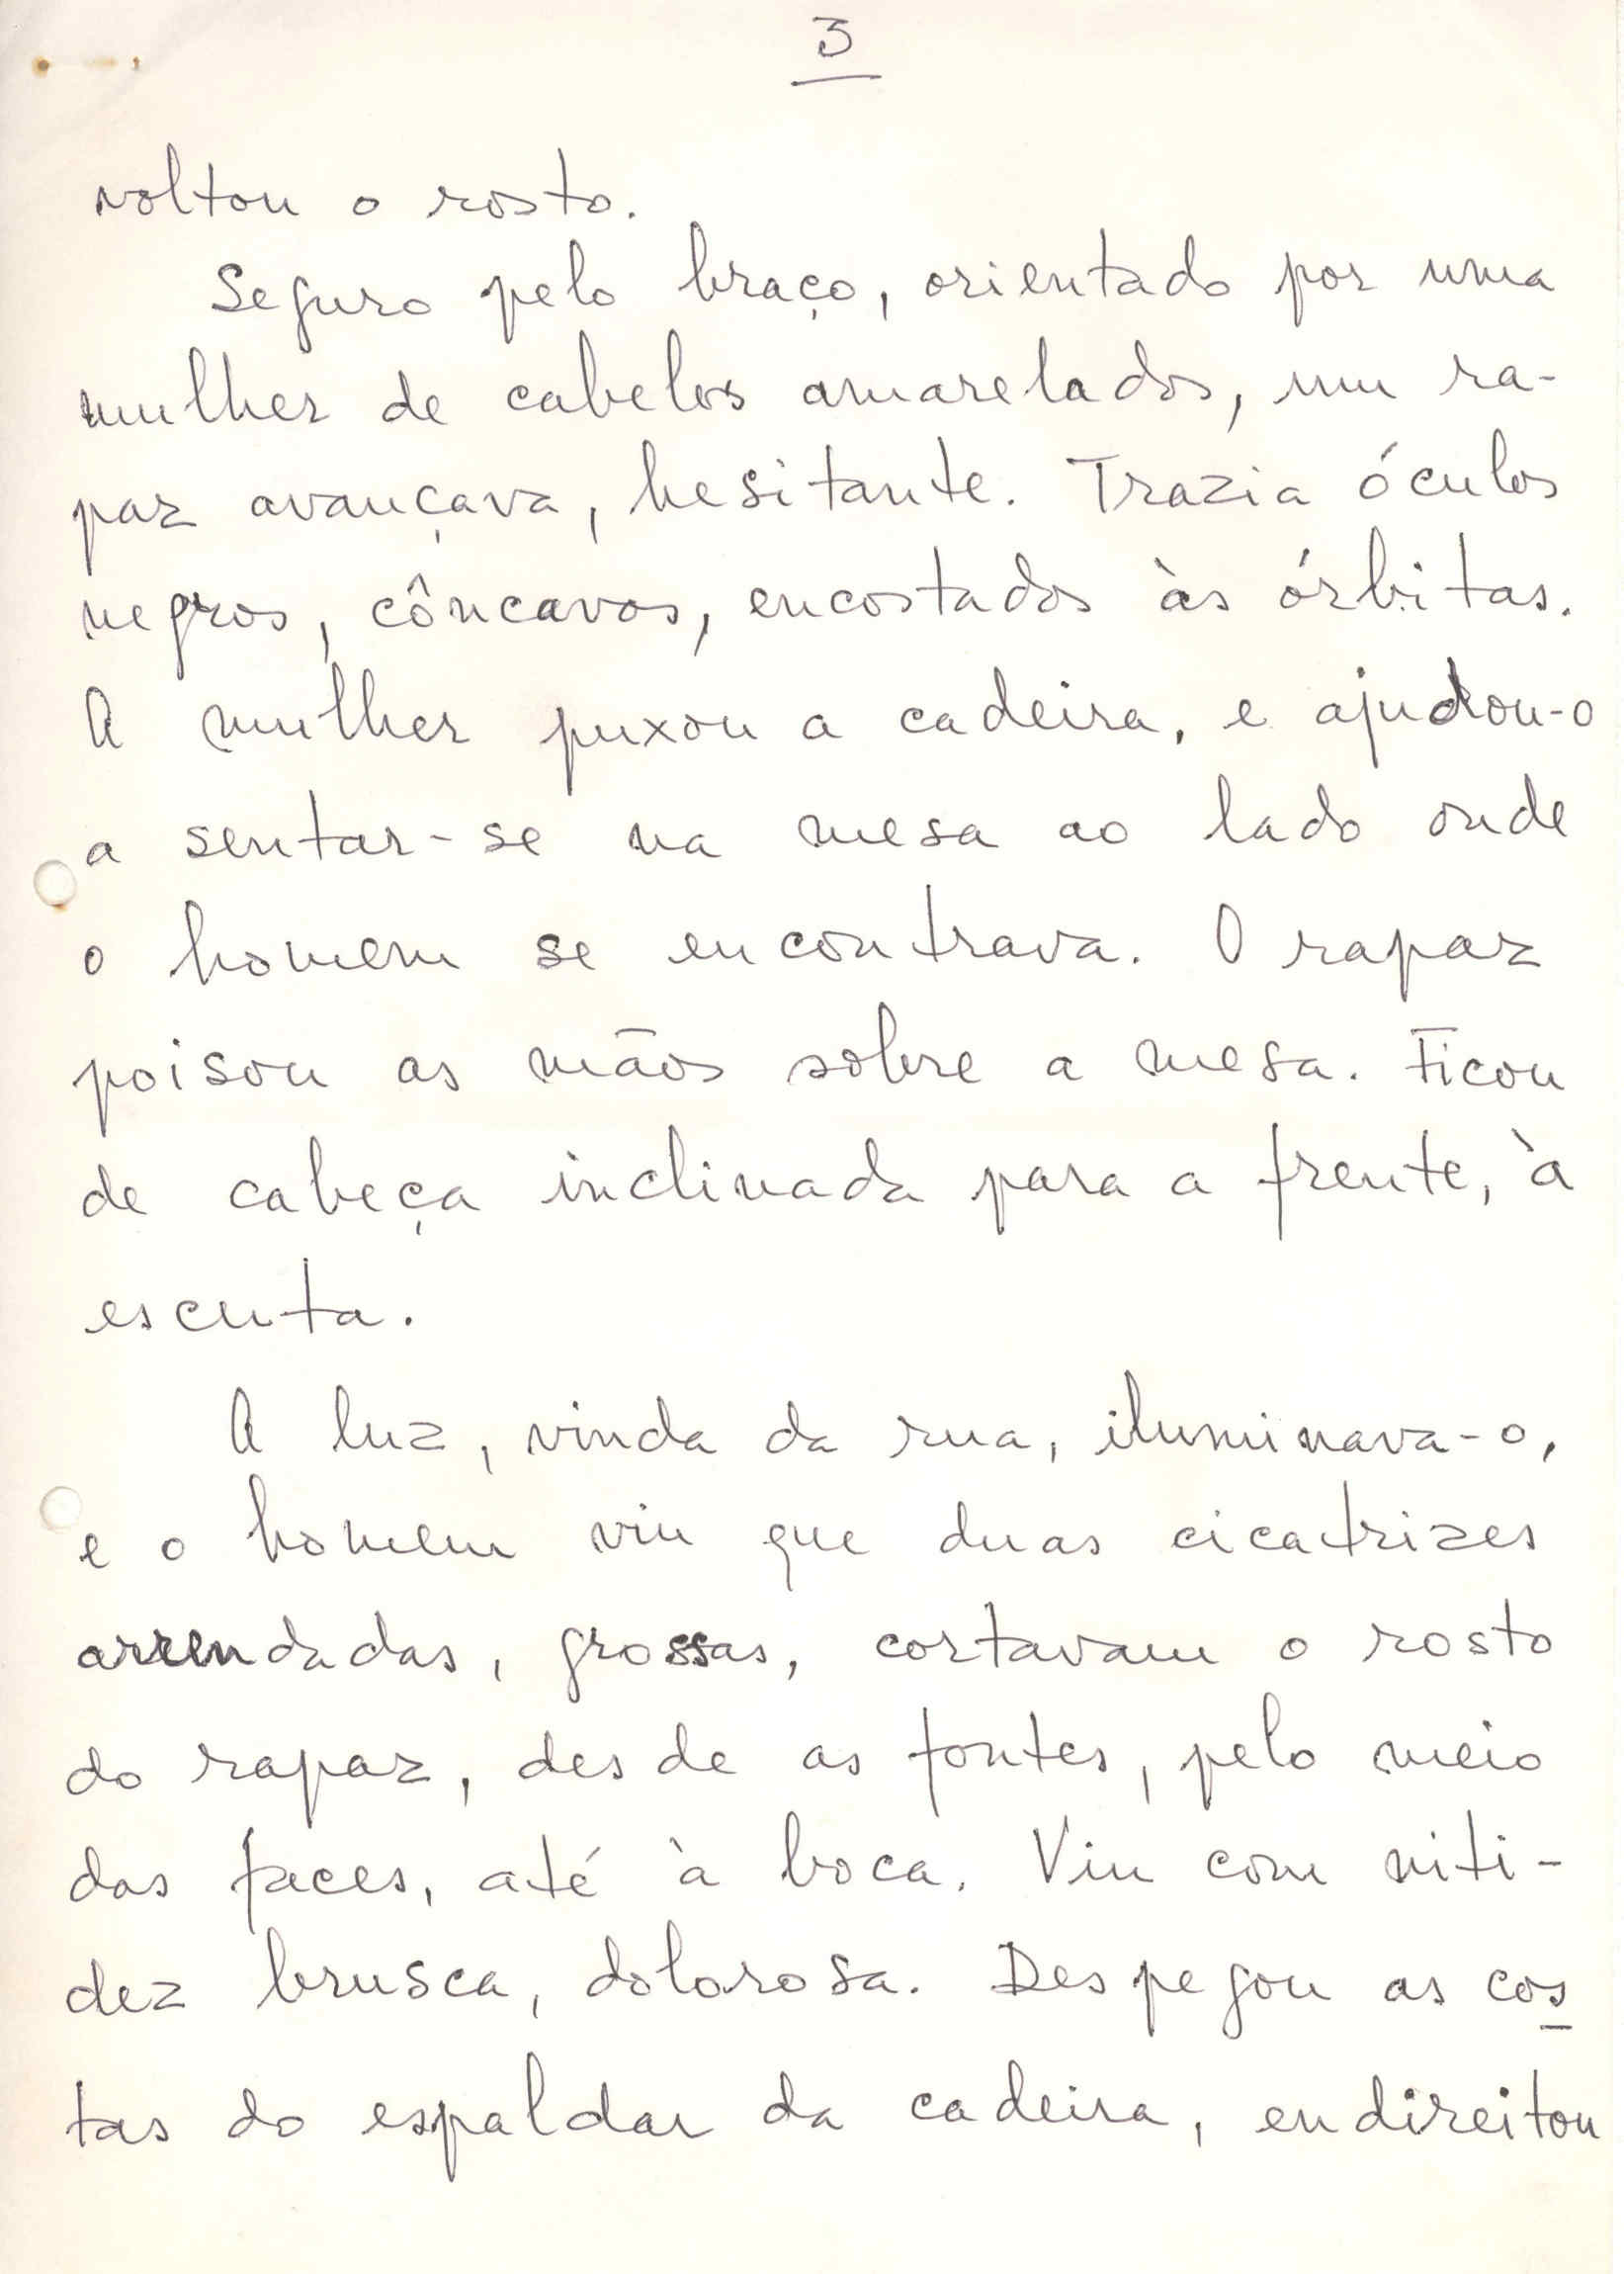 3
voltou o rosto.
Seguro pelo braço, orientado por uma
mulher de cabelos amarelados, um ra-
paz avançava, hesitante. Trazia óculos
negros, côncavos, encostados às órbitas.
A mulher puxou a cadeira, e ajudou-o
a sentar-se na mesa ao lado onde
o homem se encontrava. O rapaz
poisou as mãos sobre a mesa. Ficou
de cabeça inclinada para a frente, à
escuta.
A luz, vinda da rua, iluminava-o,
e o homem viu que duas cicatrizes
arrendadas, grossas, cortavam o rosto
do rapaz, desde as fontes, pelo meio
das faces, até à boca. Viu com niti-
dez brusca, dolorosa. Despegou as cos
tas do espaldar da cadeira, endireitou